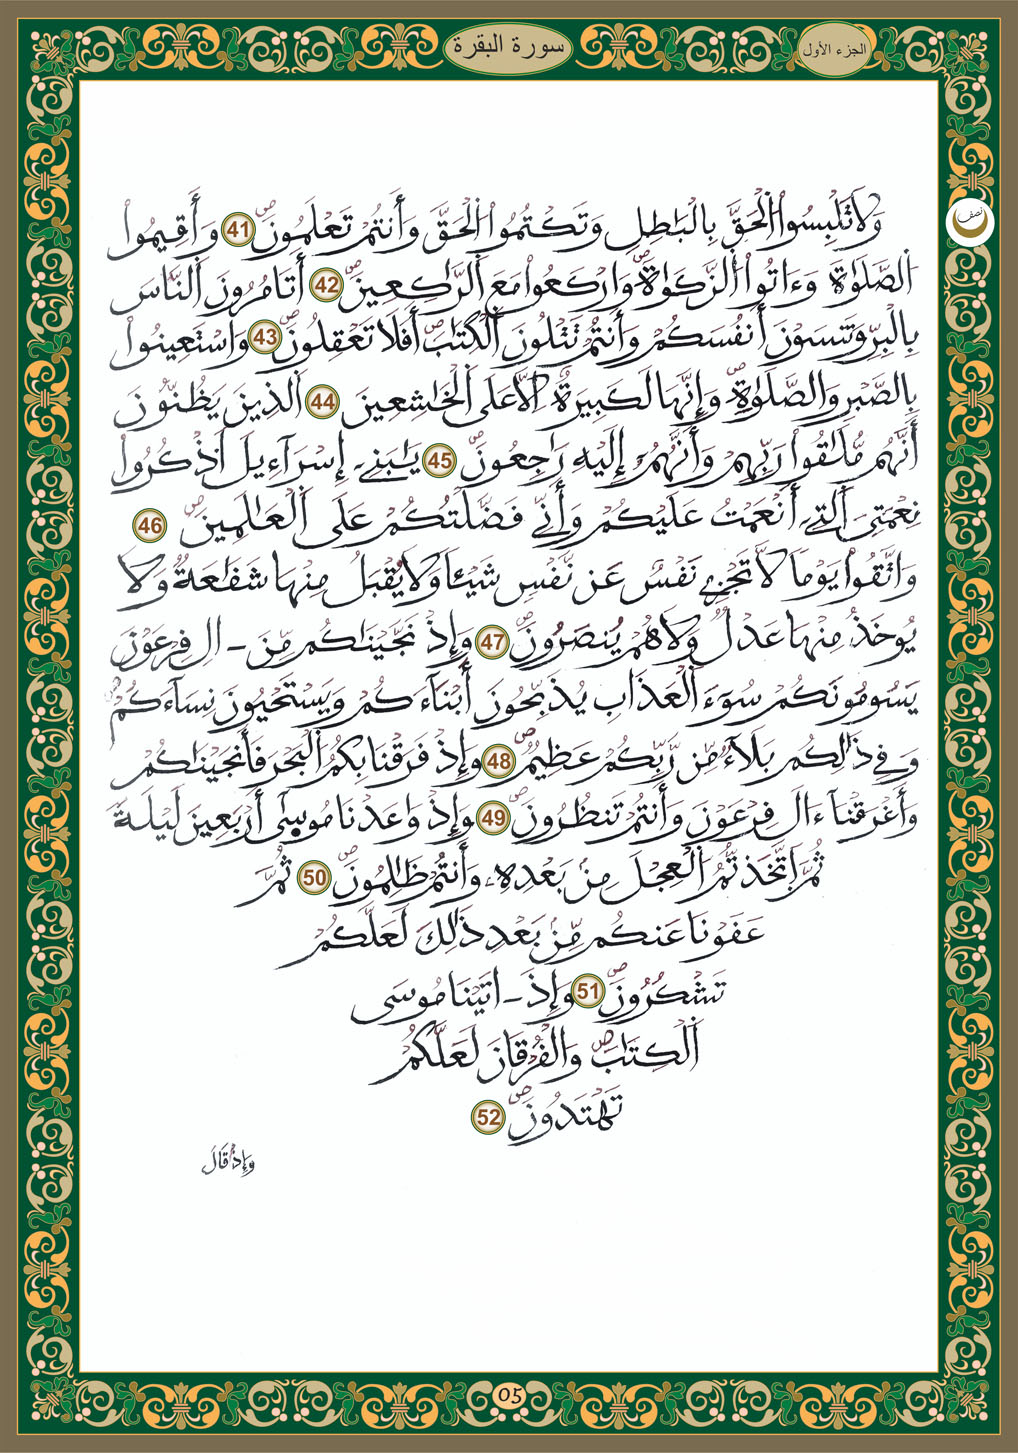 الجزء الأول
سورة البقرة
نصف
وَلَا تَلْبِسُوا الْحَقَّ بِالْبَٰطِلِ وَتَكْتُمُوا الْحَقَّ وَأَنتُمْ تَعْلَمُونَۖ 41 وَأَقِيمُوا
الصَّلَوٰةَ وَءَاتُوا الزَّكَوٰةَۖ وَارْكَعُوا مَعَ الرَّٰكِعِينَۖ 42 أَتَامُرُونَ النَّاسَ
بِالْبِرِّ وَتَنسَوْنَ أَنفُسَكُمْ وَأَنتُمْ تَتْلُونَ الْكِتَٰبَۖ أَفَلَا تَعْقِلُونَۖ 43 وَاسْتَعِينُوا
بِالصَّبْرِ وَالصَّلَوٰةِۖ وَإِنَّهَا لَكَبِيرَةٌ اِلَّا عَلَى الْخَٰشِعِينَ 44 الذِينَ يَظُنُّونَ
أَنَّهُم مُّلَٰقُوا رَبِّهِمْ وَأَنَّهُمُۥ إِلَيْهِ رَٰجِعُونَۖ 45 يَٰبَنِےٓ إِسْرَآءِيلَ اَذْكُرُوا
نِعْمَتِيَ اَلتِےٓ أَنْعَمْتُ عَلَيْكُمْ وَأَنِّے فَضَّلْتُكُمْ عَلَى الْعَٰلَمِينَۖ 46
وَاتَّقُوا يَوْماً لَّا تَجْزِے نَفْسٌ عَن نَّفْسٍ شَيْـٔاً وَلَا يُقْبَلُ مِنْهَا شَفَٰعَةٌ وَلَا
يُوخَذُ مِنْهَا عَدْلٌ وَلَا هُمْ يُنصَرُونَۖ 47 وَإِذْ نَجَّيْنَٰكُم مِّنَ ـ اٰلِ فِرْعَوْنَ
يَسُومُونَكُمْ سُوٓءَ الْعَذَابِ يُذَبِّحُونَ أَبْنَآءَكُمْ وَيَسْتَحْيُونَ نِسَآءَكُمْۖ
وَفِے ذَٰلِكُم بَلَآءٌ مِّن رَّبِّكُمْ عَظِيمٌۖ 48 وَإِذْ فَرَقْنَا بِكُمُ الْبَحْرَ فَأَنجَيْنَٰكُمْ
وَأَغْرَقْنَآ ءَالَ فِرْعَوْنَ وَأَنتُمْ تَنظُرُونَۖ 49 وَإِذْ وَٰعَدْنَا مُوسَىٰٓ أَرْبَعِينَ لَيْلَةً
ثُمَّ اَتَّخَذتُّمُ الْعِجْلَ مِنۢ بَعْدِهِۦ وَأَنتُمْ ظَٰلِمُونَۖ 50 ثُمَّ
عَفَوْنَا عَنكُم مِّنۢ بَعْدِ ذَٰلِكَ لَعَلَّكُمْ
تَشْكُرُونَۖ 51 وَإِذَ ـ اتَيْنَا مُوسَى
الْكِتَٰبَۖ وَالْفُرْقَانَ لَعَلَّكُمْ
تَهْتَدُونَۖ 52
وَإِذْ قَالَ
05